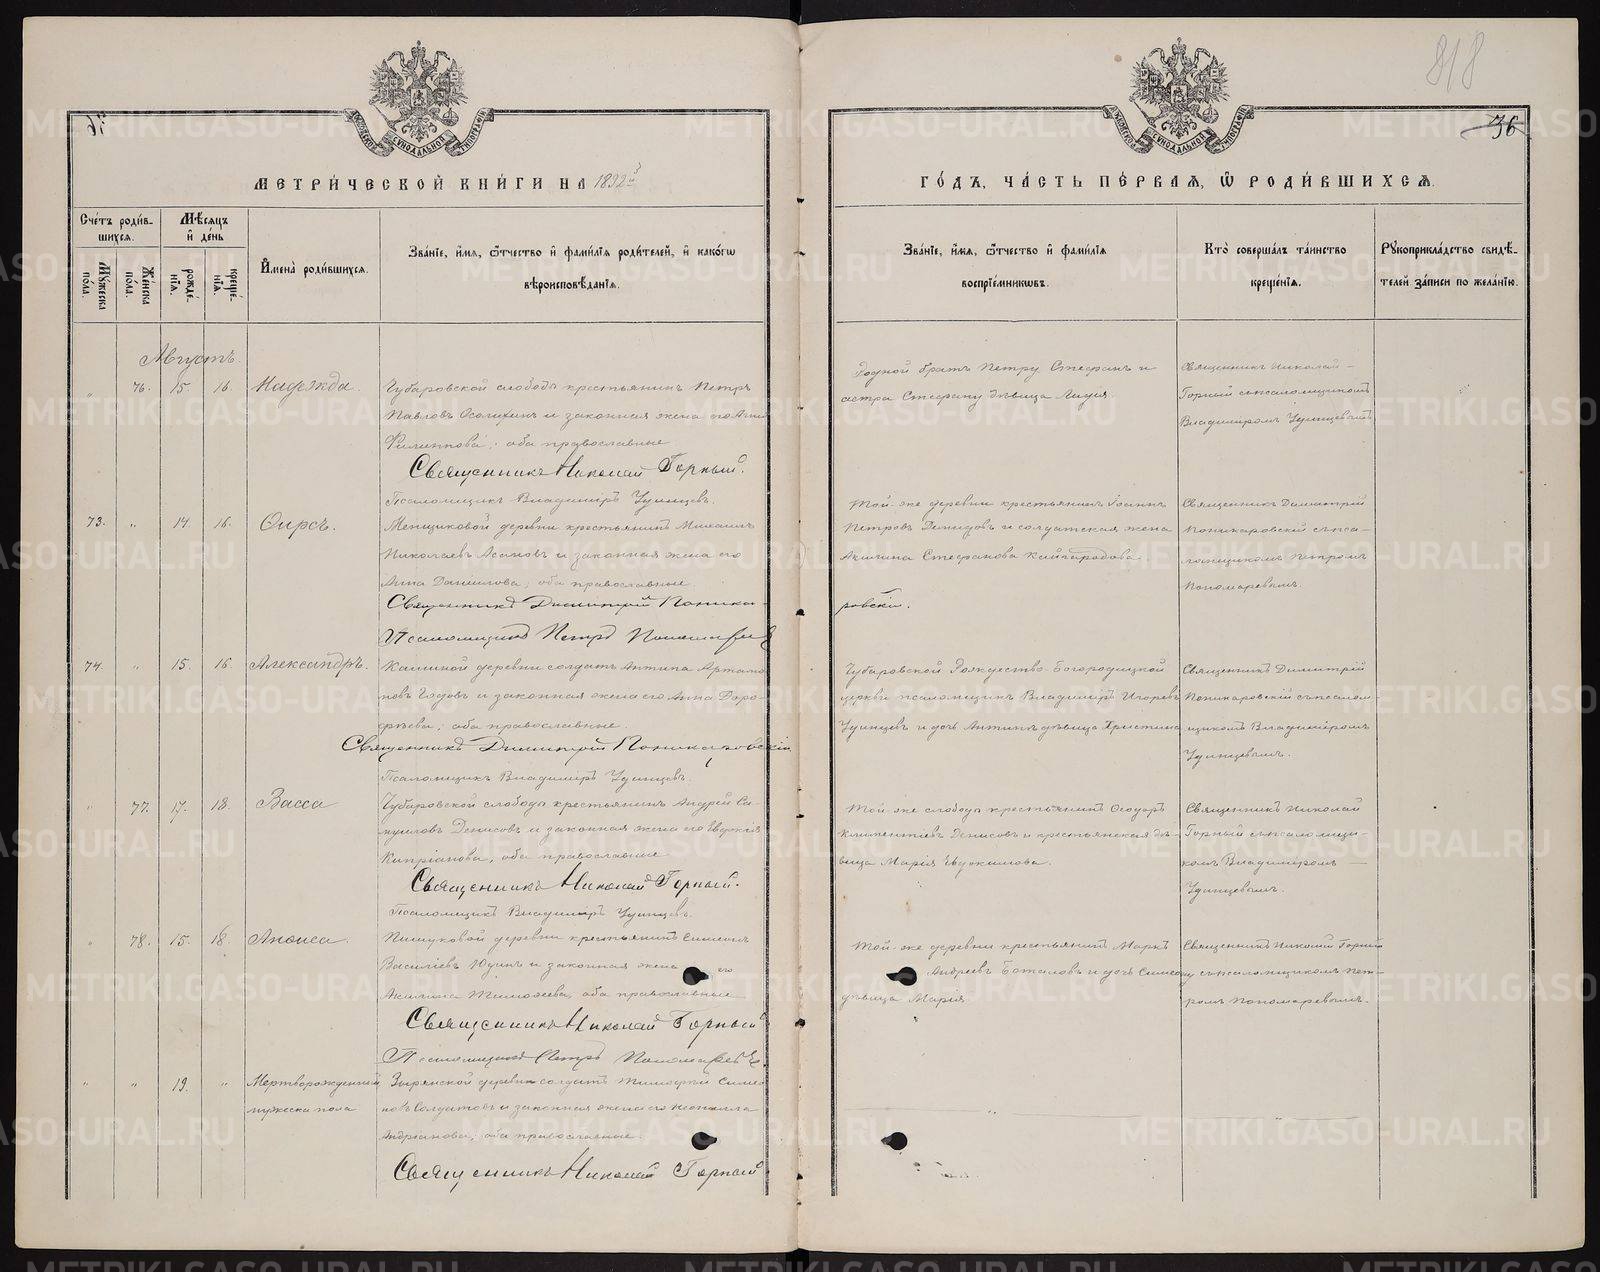 818
36
МЕТРИ́ЧЕСКОЙ КНИ́ГИ НА 1892й
ГО́ДЪ, ЧА́СТЬ ПЕ́РВАЯ, Ѿ РОДИ́ВШИХСЯ.
Сче́тъ роди́вшихся.
Му́жеска по́ла.
Же́нска по́ла.
Мѣ́сяцъ и́ де́нь
рожде́нїя.
креще́нїя.
И́мена̀ роди́вшихся.
Зва́нїе, и́мя, ѻ҆́тчество и҆ фами́лїя роди́телей, и҆ како́гѡ
вѣроисповѣ́данїя.
Зва́нїе, и́мя, ѻ҆́тчество и҆ фами́лїя
воспрїе́мниковъ.
Кто̀ соверша́лъ та́инство
креще́нїя.
Рукоприкла́дство свидѣ́-
телей за́писи по жела́нїю.
Августъ.
" 76. 15 16. Надежда.
Чубаровской слободы крестьянинъ Петръ
Павловъ и законная жена его Анна
Филиппова; оба православные
Священникъ Николай Горный.
Псаломщикъ Владиміръ Удинцевъ.
Родной братъ Петру Стефанъ и
сестра Стефану дѣвица Лидія.
Священникъ Николай
Горный съ псаломщикомъ
Владиміромъ Удинцевымъ
73. " 14. 16. Ѳирсъ.
Менщиковой деревни крестьянинъ Михаилъ
Николаевъ и законная жена его
Анна Данилова, оба православные.
Священникъ Димитрій Поника-
ровскій.
Псаломщикъ Петръ Пономаревъ
Той-же деревни крестьянинъ Іоаннъ
Петровъ Демидовъ и солдатская жена
Акилина Стефанова Кайгородова.
Священникъ Димитрій
Поникаровскій съ пса-
ломщикомъ Петромъ
Пономаревымъ.
74. " 15. 16. Александръ.
деревни солдатъ Антипа Артамо-
новъ и законная жена его Анна Доро-
феева; оба православные.
Священникъ Димитрій Поникаровскій
Псаломщикъ Владиміръ Удинцевъ.
Чубаровской Рождество-Богородицкой
церкви псаломщикъ Владиміръ Игоревъ
Удинцевъ и дочь Антипы дѣвица Христина
Священникъ Димитрій
Поникаровскій съ псалом-
щикомъ Владиміромъ
Удинцевымъ.
" 77. 17. 18. Васса
Чубаровской слободы крестьянинъ Андрей Са-
муиловъ Денисовъ и законная жена его Евдокія
Кипріанова, оба православные
Священникъ Николай Горный.
Псаломщикъ Владиміръ Удинцевъ.
Той-же слободы крестьянинъ Ѳеодоръ
Климентіевъ Денисовъ и крестьянская дѣ-
вица Марія Евдокимова.
Священникъ Николай
Горный съ псаломщи-
комъ Владиміромъ
Удинцевымъ.
" 78. 15. 18. Анѳиса.
деревни крестьянинъ Симеонъ
Василіевъ Юдинъ и законная жена его
Акилина Тимофеева, оба православные
Священникъ Николай Горный
Псаломщикъ Петръ Пономаревъ.
Той-же деревни крестьянинъ Маркъ
Андреевъ Боталовъ и дочь Симеону
дѣвица Марія
Священникъ Николай Горный
съ псаломщикомъ Пет-
ромъ Пономаревымъ.
" " 19. " Мертворожденный
мужеска пола
Зырянской деревни солдатъ Тимофей Симео-
новъ Солдатовъ и законная жена его Неонилла
Андріанова; оба православные.
Священникъ Николай Горный
METRIKI.GASO-URAL.RU